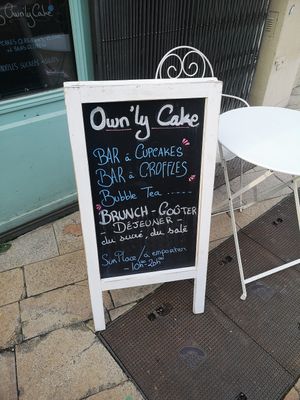 Own'ly Cake
Own'ly Cake
BAR à CUPCAKES
BAR à CROFFLES
Bubble Tea ......
BRUNCH - GOÛTER
- DÉJEUNER -
du sucré, du salé
Sur Place / à emporter
- 10h - 20h -